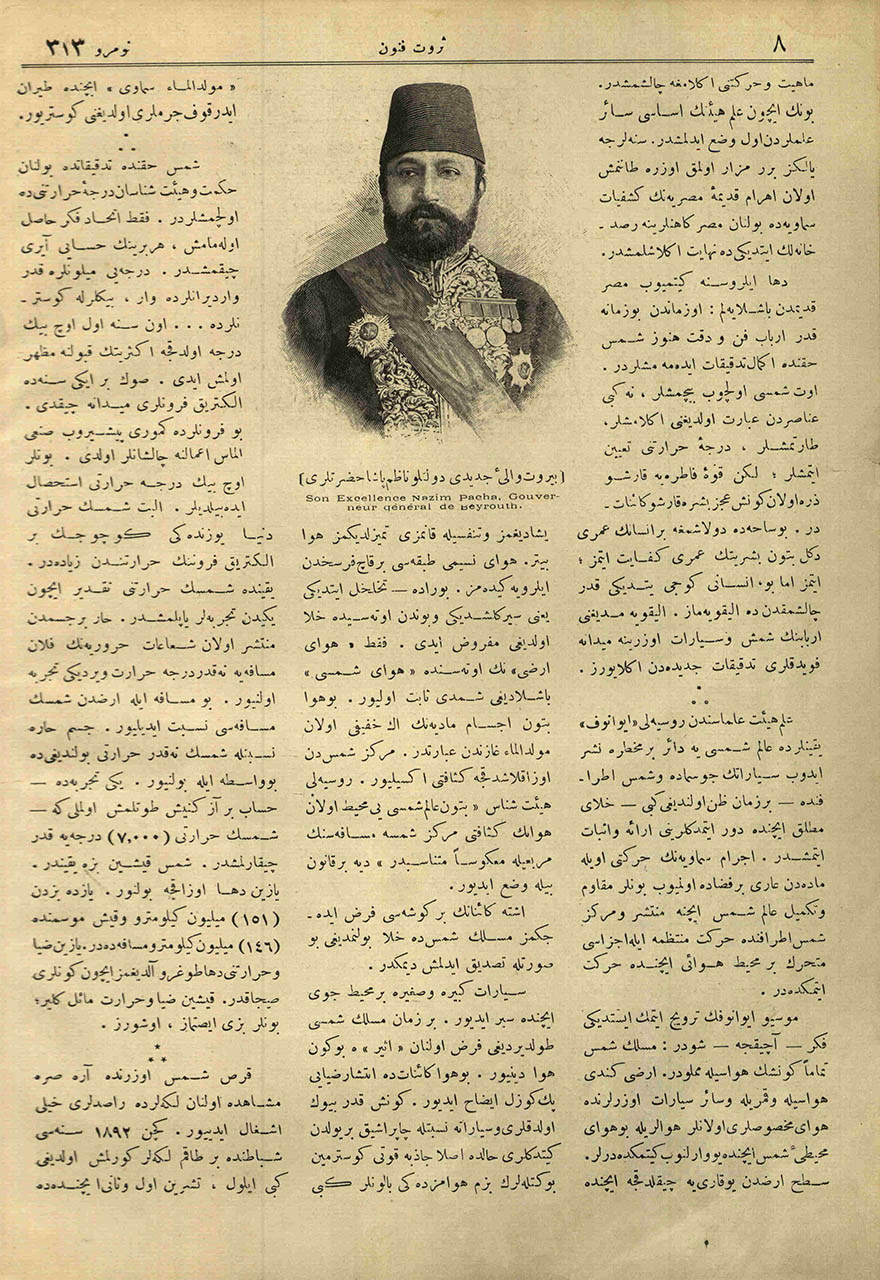 ٨
ثروت فنون
نومرو ٣١٣
ماهيت وحركتنى اكلامغه چالشمشدر.
بونك ايچون علم هيئتك اساسى سائر
علملردن اول وضع ايدلمشدر. سنه لرجه
يالكز برر مزار اولمق اوزره طانتمش
اولان اهرام قديمهٔ مصريه نك كشفيات
سماويه ده بولنان مصر كاهنلرينه رصد ـ
خانه لك ايتديكى ده نهايت اكلاشلمشدر.
دها ايلروسنه كيتميوب مصر
قديمدن باشلايه لم : اوزماندن بوزمانه
قدر ارباب فن و دقت هنوز شمس
حقنده اكمال تدقيقات ايده مه مشلردر .
اوت شمسى اولچوب بيچمشلر ، نه كبى
عناصردن عبارت اولديغنى اكلامشلر،
طارتمشلر ، درجهٔ حرارتنى تعيين
ايتمشلر ؛ لكن قوهٔ فاطره يه قارشو
ذره اولان كونش عجز بشره قارشو كائنات ـ
در . بوساحه ده دولاشمغه برانسانك عمرى
دكل بتون بشريتك عمرى كفايت ايتمز ؛
ايتمز اما بو، انسانى كوجى يتديكى قدر
چالشمقدن ده اليقويه ماز . اليقويه مديغنى
اربابنك شمس وسيارات اوزرينه ميدانه
قويدقلرى تدقيقات جديده دن اكلايورز .
علم هيئت علماسندن روسيه لى «ايوانوف»
يقينلرده عالم شمسى يه دائر بر مخطره نشر
ايدوب سياراتك جو سماده وشمس اطرا ـ
فنده — برزمان ظن اولنديغى كبى — خلاى
مطلق ايچنده دور ايتمدكلرينى ارائه واثبات
ايتمشدر . اجرام سماويه نك حركتى اويله
ماده دن عارى برفضاده اولميوب بونلر مقاوم
وتكميل عالم شمس ايچنه منتشر ومركز
شمس اطرافنده حركت منتظمه ايله اجزاسى
متحرك بر محيط هوائى ايچنده حركت
ايتمكده در .
موسيو ايوانوفك ترويج ايتمك ايستديكى
فكر — آچيقجه — شودر : مسلك شمس
تماماً كونشك هواسيله مملودر. ارضى كندى
هواسيله وقمريله وسائر سيارات اوزرلرنده
هواى مخصوصلرى اولانلر هوالريله بوهواى
محيطىٔ شمس ايچنده يووارلنوب كيتمكده درلر.
سطح ارضدن يوقارى يه چيقلدقجه ايچنده
(بيروت والىٔ جديدى دولتلو ناظم پاشا حضرتلرى)
Son Excellence Nazim Pacha, Gouver-
neur général de Beyrouth.
يشاديغمز وتنفسيله قانمزى تميزلديكمز هوا
بيتر. هواى نسيمى طبقه سى برقاچ فرسخدن
ايلرويه كيده مز. بوراده — تخلخل ايتديكى
يعنى سيركلشديكى وبوندن اوته سيده خلا
اولديغى مفروض ايدى . فقط « هواى
ارضى» نك اوته سنده « هواى شمسى »
باشلاديغى شمدى ثابت اوليور. بوهوا
بتون اجسام ماديه نك اك خفيفى اولان
مولدالماء غازندن عبارتدر. مركز شمس دن
اوزاقلاشدقجه كثافتى اكسيليور. روسيه لى
هيئت شناس « بتون عالم شمسى يى محيط اولان
هوانك كثافتى مركز شمسه مسافه سنك
مربعيله معكوساً متناسبدر » ديه برقانون
بيله وضع ايديور.
اشته كائناتك بر كوشه سى فرض ايده ـ
جكمز مسلك شمس ده خلا بولنمديغى بو
صورتله تصديق ايدلمش ديمكدر.
سيارات كبيره وصغيره بر محيط جوى
ايچنده سير ايديور. برزمان مسلك شمسى
طولديرديغى فرض اولنان « اثير » ه بوكون
هوا دينيور. بوهوا كائنات ده انتشار ضيايى
پك كوزل ايضاح ايديور. كونش قدر بيوك
اولدقلرى وسياراته نسبتله چاپراشيق بر يولدن
كيتدكلرى حالده اصلا جاذبه قوتى كوسترمين
بوكتله لرك بزم هوامزده كى بالونلر كبى
« مولدالماء سماوى » ايچنده طيران
ايدر قوف جرملرى اولديغنى كوستريور.
شمس حقنده تدقيقاتده بولنان
حكمت وهيئت شناسان درجهٔ حرارتنى ده
اولچمشلردر . فقط اتحاد فكر حاصل
اوله مامش ، هربرينك حسابى آيرى
چيقمشدر . درجه يى ميلونلره قدر
وارديرانلرده وار ، بيكلرله كوستر ـ
نلرده ... اون سنه اول اوچ بيك
درجه اولدقجه اكثريتك قبولنه مظهر
اولمش ايدى . صوك برايكى سنه ده
الكتريق فرونلرى ميدانه چيقدى .
بو فرونلرده كمورى پيشيروب صنعى
الماس اعمالنه چالشانلر اولدى . بونلر
اوچ بيك درجه حرارتى استحصال
ايده بيلديلر. البت شمسك حرارتى
دنيا يوزنده كى كوچوجك بر
الكتريق فروننك حرارتندن زياده در.
يقينده شمسك حرارتنى تقدير ايچون
يكيدن تجربه لر ياپلمشدر. حار برجمدن
منتشر اولان شعاعات حروريه نك فلان
مسافه يه نه قدر درجه حرارت ويرديكى تجربه
اولنيور . بو مسافه ايله ارضدن شمسك
مسافه سى نسبت ايديليور. جسم حاره
نسبتله شمسك نه قدر حرارتى بولنديغى ده
بوواسطه ايله بولنيور . يكى تجربه ده —
حساب بر آز كنيش طوتلمش اولملى كه —
شمسك حرارتى (٧,٠٠٠) درجه يه قدر
چيقارلمشدر. شمس قيشين بزه يقيندر .
يازين دها اوزاقجه بولنور. يازده بزدن
(١٥١) ميليون كيلومترو وقيش موسمنده
(١٤٦) ميليون كيلومترو مسافه ده در. يازين ضيا
وحرارتنى دها طوغرو آلديغمز ايچون كونلرى
صيجاقدر. قيشين ضيا وحرارت مائل كلير؛
بونلر بزى ايصتماز ، اوشورز .
قرص شمس اوزرنده آره صره
مشاهده اولنان لكه لرده راصدلرى خيلى
اشغال ايدييور. كچن ١٨٩٢ سنه سى
شباطنده بر طاقم لكه لر كورلمش اولديغى
كبى ايلول ، تشرين اول وثانى ايچنده ده